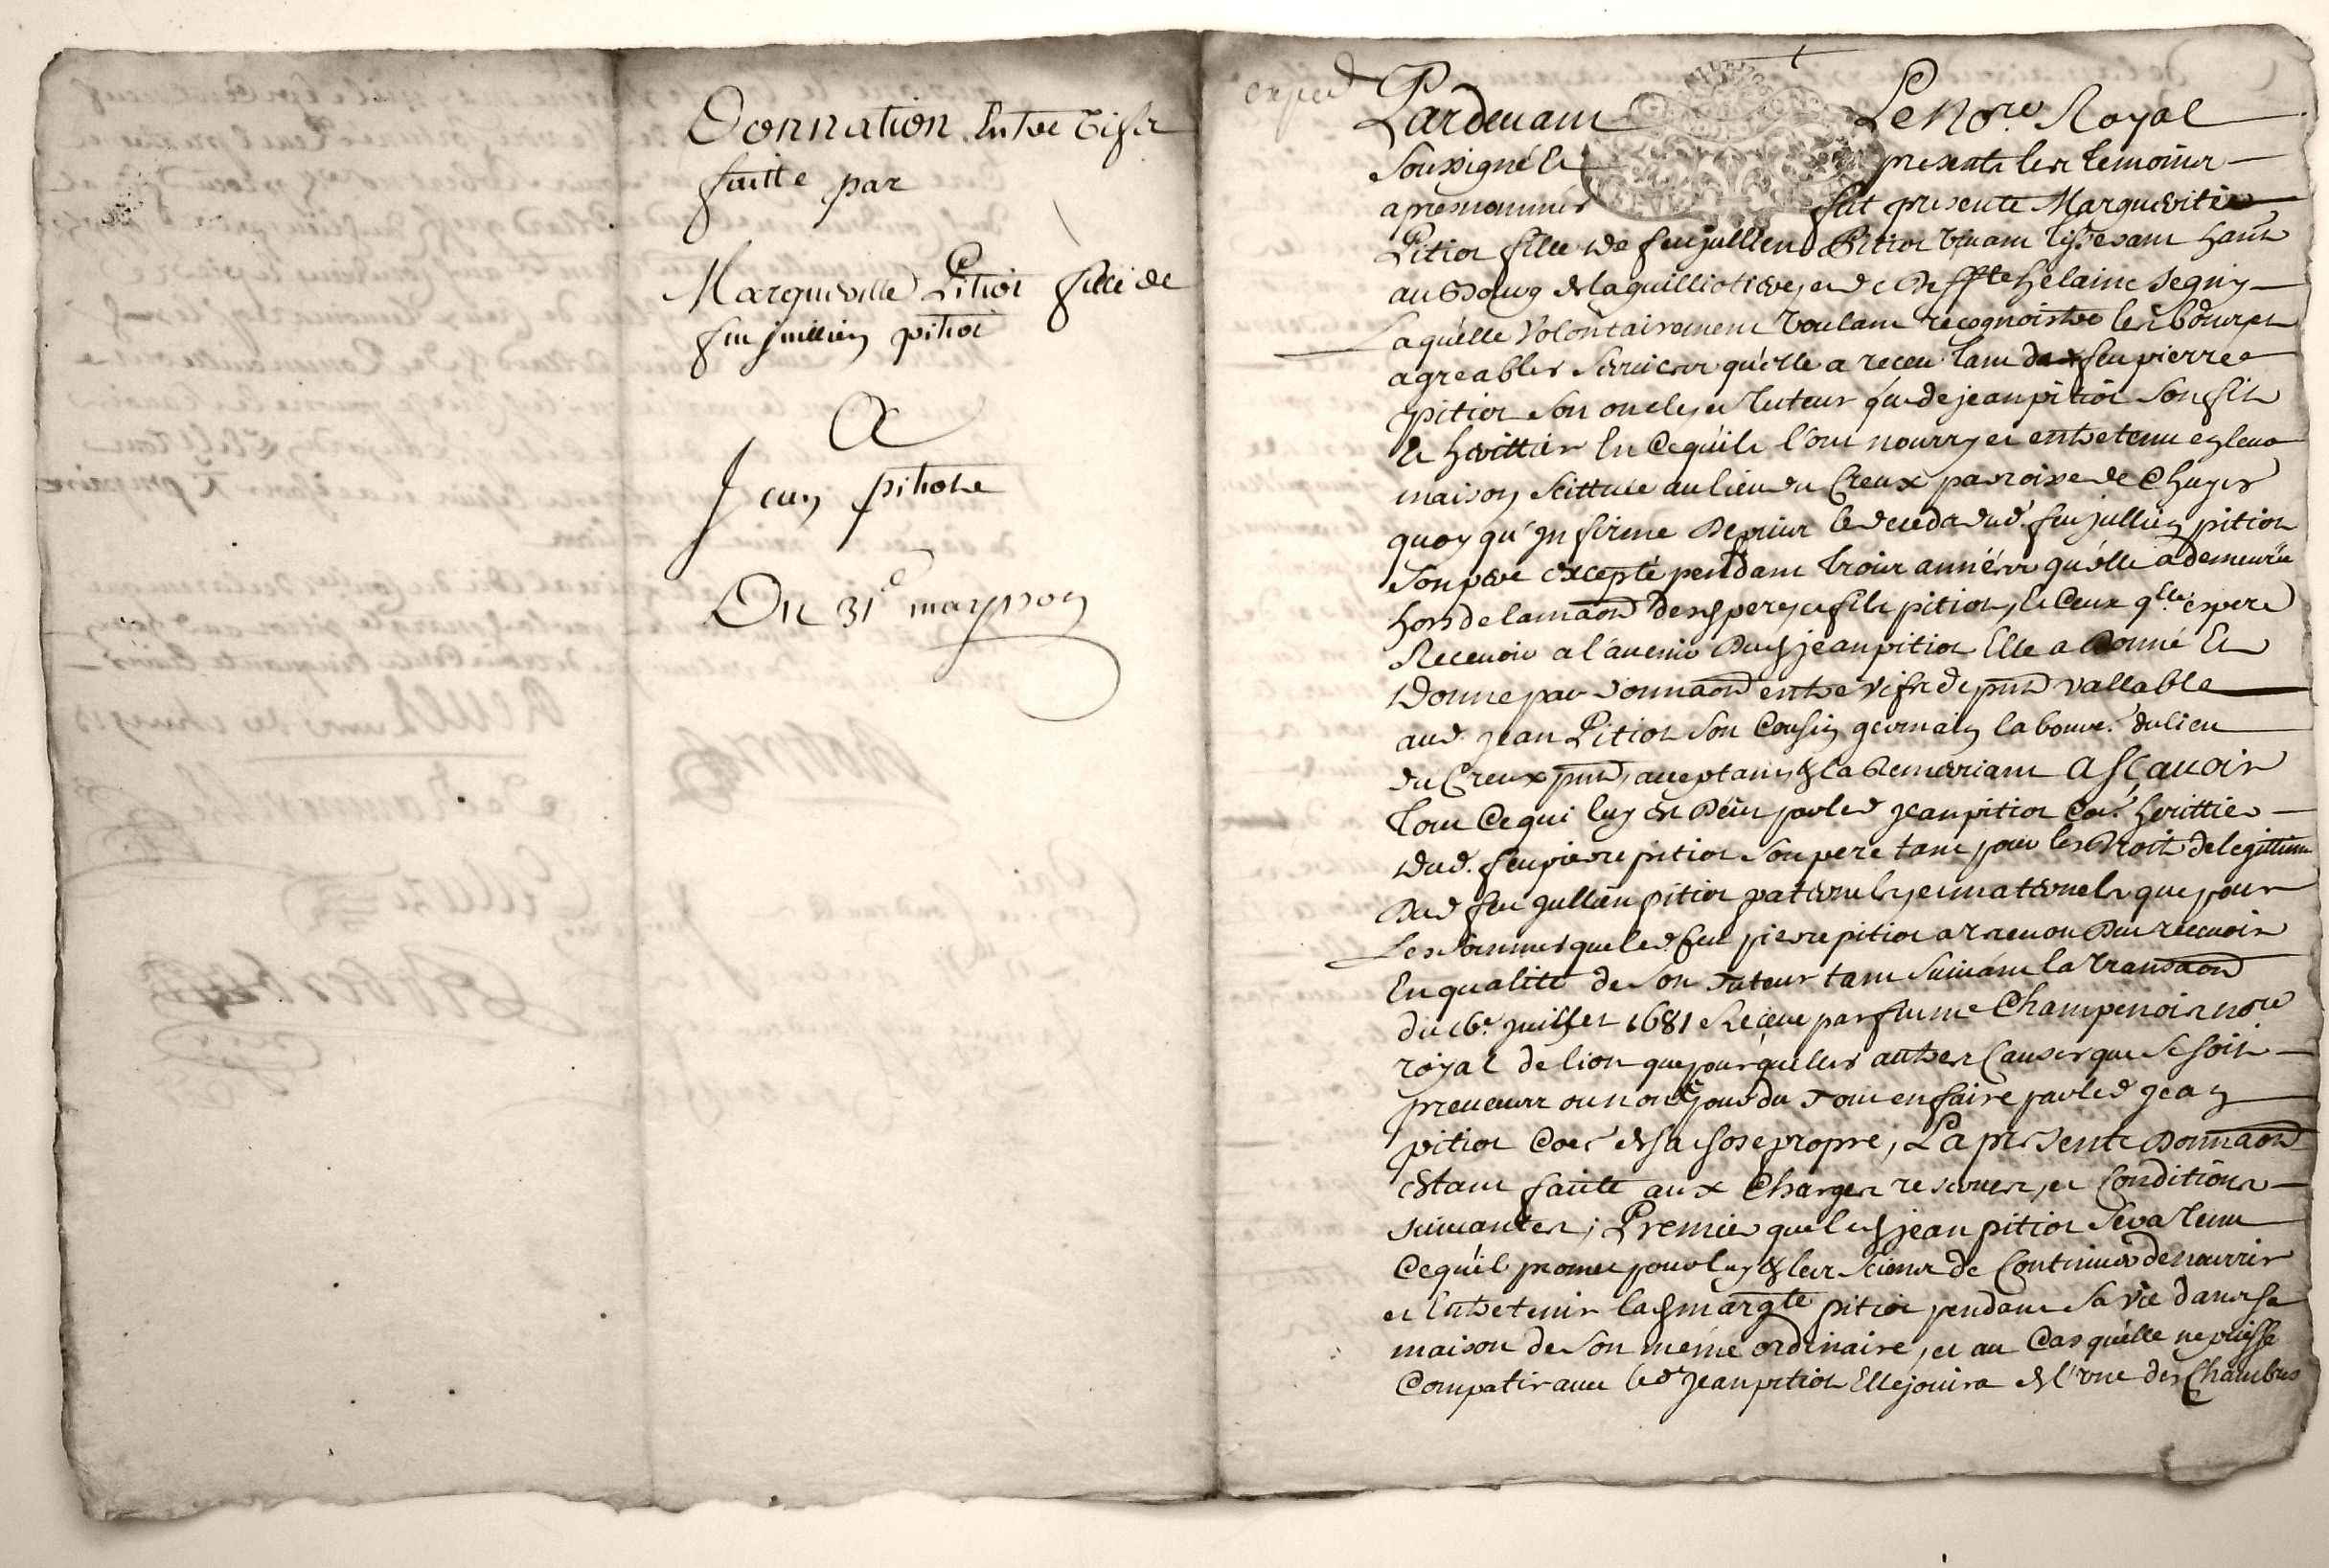 Donnation Entre vifs
faitte par
Margueritte Pitiot fille de
feu jullien pitiot
A
Jean pitiot
Du 31e may
exped
Pardevant Le No.re Royal
Soussigné Et presents les temoins
apres nommés fut presente Marguerite
Pitiot fille de feu jullien Pitiot vivant tisserant hant
au Bourg de la guilliotiere, et de deffte helaine seguy
Laquelle Volontairement voulant recognoistre les bons et
agreables services qu'elle a receu tant de feu pierre
pitiot son oncle et tuteur que de jean pitiot son fils
et herittier En ce qu'ils l'ont nourry et entretenu en leur
maison scittuée au lieu du Creux parroisse de Chuyes
quoy qu'Infirme Depuis le deceds dud. feu jullien pitiot
son pere excepté pendant trois années qu'elle a demeuré
hors de la maon desd pere et fils pitiot, et Ceux qlle espere
Recevoir a l'avenir Dud jean pitiot Elle a Donné Et
Donne par donnaon entre vifs de pnt vallable
aud. jean Pitiot son Cousin germain laboure.r du lieu
du Creux pnt, acceptant & la Remerciant A sçavoir
tout Ce qui luy est Deub par led jean pitiot Coe. herittier
dud. feu pierre pitiot son pere tant pour les Droits de legittime
Dud feu jullien pitiot paternels et maternels que pour
Les sommes que led feu pierre pitiot a receu ou Deu recevoir
En qualité de son tuteur tant suivant la transaon
du 16e. juillet 1681 Receue par feu me Champenois nore
royal de lion que pour quelles autres Causes que se soit
preveues ou non pour du tout en faire par led jean
pitiot Coe de sa chose propre, La presente Donnaon
estant faitte aux Charges reserves, et Conditions
suivantes; Premier que led jean pitiot sera tenu
Ce qu'il promet pour luy & les siens de Continuer de nourrir
et Entretenir lad margte pitiot pendant sa vie dans sa
maison de son même ordinaire, et au Cas qu'elle ne puisse
Compatir avec led jean pitiot Elle jouira de l'une des Chambres